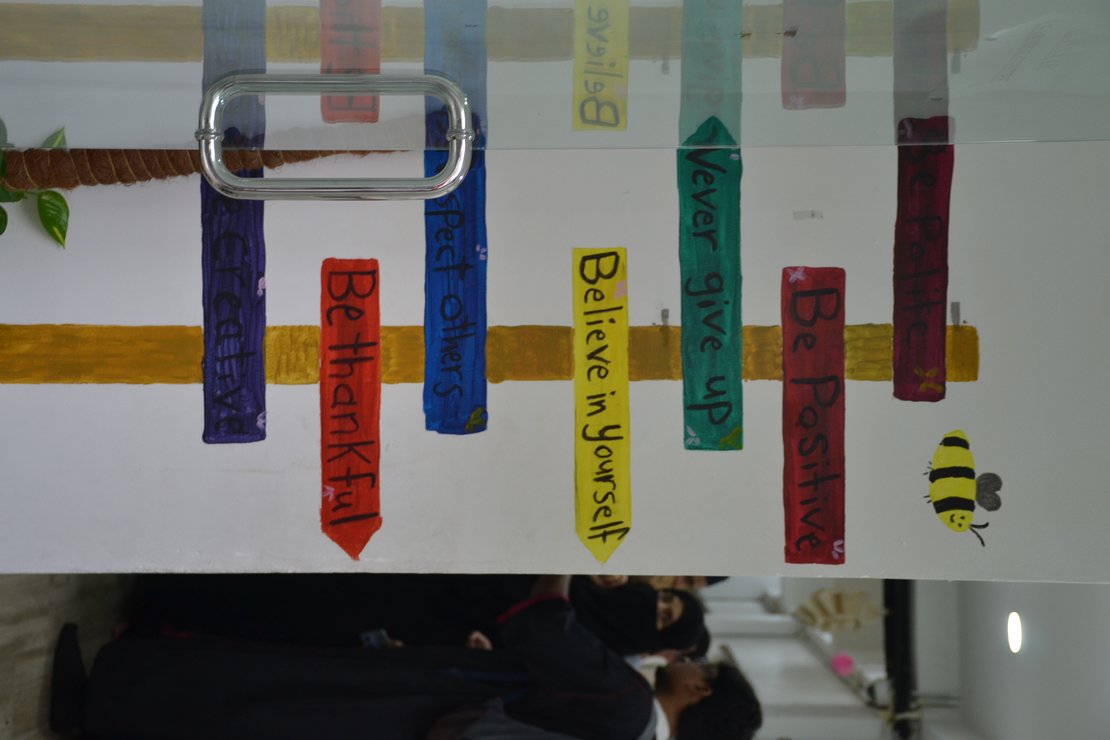 Be Polite
Be Positive
Never give up
Believe in yourself
spect others
Be thankful
e Creative